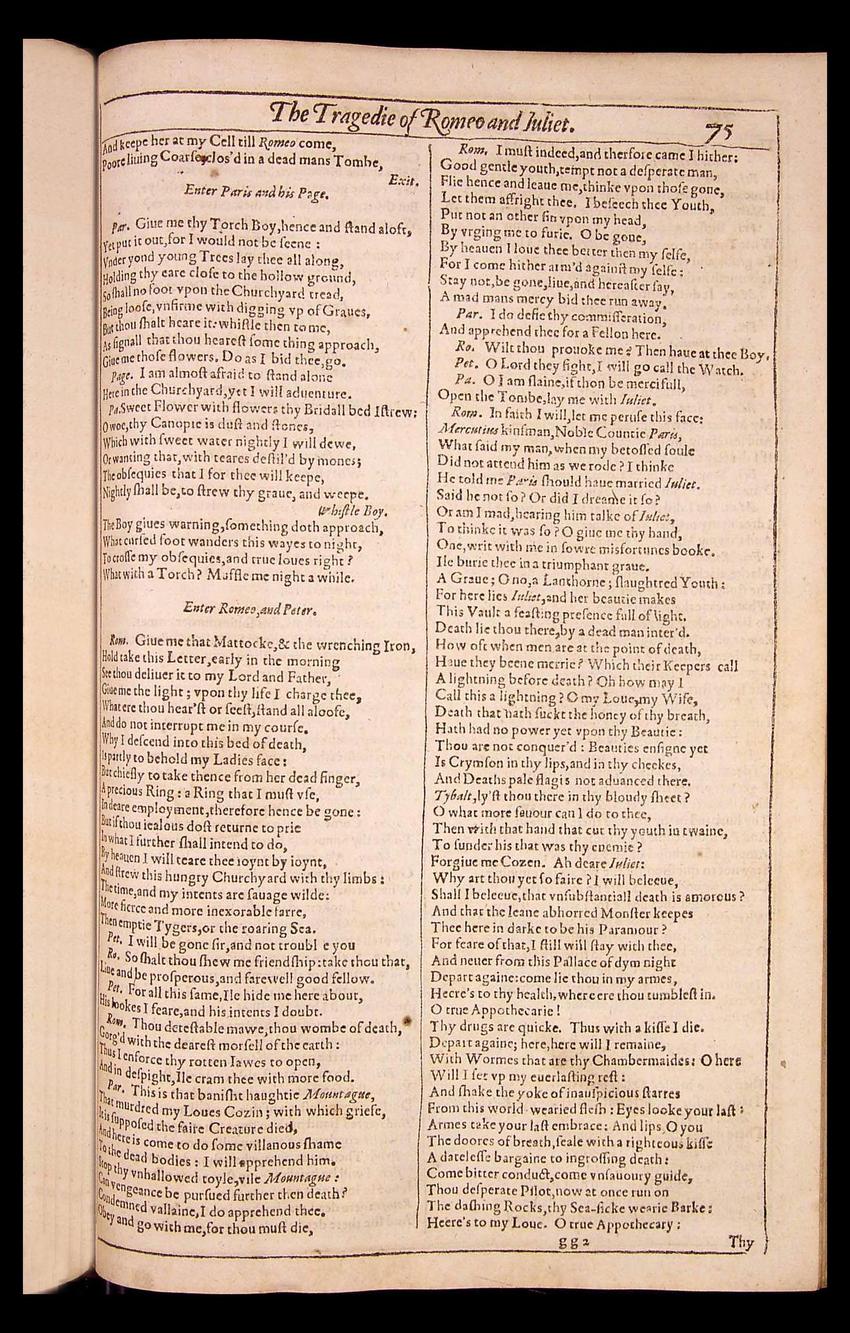 The Tragedie of Romeo and Iuliet.
75
And keepe her at my Cell till Romeo come,
Poore liuing Coarse, clos'd in a dead mans Tombe,
Exit.
Enter Paris and his Page.
Par. Giue me thy Torch Boy, hence and ſtand aloft,
Yet put it out, for I would not be ſeene :
Vnder yond young Trees lay thee all along,
Holding thy eare cloſe to the hollow ground,
So ſhall no foot vpon the Churchyard tread,
Being looſe, vnfirme with digging vp of Graues,
But thou ſhalt heare it: whiſtle then to me,
As ſignall that thou heareſt ſome thing approach,
Giue me thoſe flowers. Do as I bid thee, go.
Page. I am almoſt afraid to ſtand alone
Here in the Churchyard, yet I will aduenture.
Pa. Sweet Flower with flowers thy Bridall bed I ſtrew:
O woe, thy Canopie is duſt and ſtones,
Which with ſweet water nightly I will dewe,
Or wanting that, with teares deſtil'd by mones;
The obſequies that I for thee will keepe,
Nightly ſhall be, to ſtrew thy graue, and weepe.
Whiſtle Boy.
The Boy giues warning, ſomething doth approach,
What curſed foot wanders this wayes to night,
To croſſe my obſequies, and true loues right ?
What with a Torch? Muffle me night a while.
Enter Romeo, and Peter.
Rom. Giue me that Mattocke, & the wrenching Iron,
Hold take this Letter, early in the morning
See thou deliuer it to my Lord and Father,
Giue me the light ; vpon thy life I charge thee,
What ere thou hear'ſt or ſeeſt, ſtand all aloofe,
And do not interrupt me in my courſe.
Why I deſcend into this bed of death,
Is partly to behold my Ladies face :
But chiefly to take thence from her dead finger,
A precious Ring : a Ring that I muſt vſe,
In deare employment, therefore hence be gone :
But if thou iealous doſt returne to prie
In what I further ſhall intend to do,
By heauen I will teare thee ioynt by ioynt,
And ſtrew this hungry Churchyard with thy limbs :
The time, and my intents are ſauage wilde:
More fierce and more inexorable farre,
Then emptie Tygers, or the roaring Sea.
Pet. I will be gone ſir, and not troubl e you
Ro. So ſhalt thou ſhew me friendſhip: take thou that,
Liue and be proſperous, and farewell good fellow.
Pet. For all this ſame, Ile hide me here about,
His lookes I feare, and his intents I doubt.
Rom. Thou deteſtable mawe, thou wombe of death,
Gorg'd with the deareſt morſell of the earth :
Thus I enforce thy rotten Iawes to open,
And in deſpight, Ile cram thee with more food.
Par. This is that baniſht haughtie Mountague,
That murdred my Loues Cozin ; with which griefe,
It is ſuppoſed the faire Creature died,
And here is come to do ſome villanous ſhame
To the dead bodies : I will apprehend him.
Stop thy vnhallowed toyle, vile Mountague :
Can vengeance be purſued further then death?
Condemned vallaine, I do apprehend thee.
Obey and go with me, for thou muſt die,
Rom. I muſt indeed, and therfore came I hither:
Good gentle youth, tempt not a deſperate man,
Flie hence and leaue me, thinke vpon thoſe gone,
Let them affright thee. I beſeech thee Youth,
Put not an other ſin vpon my head,
By vrging me to furie. O be gone,
By heauen I loue thee better then my ſelfe,
For I come hither arm'd againſt my ſelfe :
Stay not, be gone, liue, and hereafter ſay,
A mad mans mercy bid thee run away.
Par. I do defie thy commiſſeration,
And apprehend thee for a Fellon here.
Ro. Wilt thou prouoke me ? Then haue at thee Boy.
Pet. O Lord they fight, I will go call the Watch.
Pa. O I am ſlaine, if thou be mercifull,
Open the Tombe, lay me with Iuliet.
Rom. In faith I will, let me peruſe this face:
Mercutius kinſman, Noble Countie Paris,
What ſaid my man, when my betoſſed ſoule
Did not attend him as we rode ? I thinke
He told me Paris ſhould haue married Iuliet.
Said he not ſo ? Or did I dreame it ſo ?
Or am I mad, hearing him talke of Iuliet,
To thinke it was ſo ? O giue me thy hand,
One, writ with me in ſowre misfortunes booke.
Ile burie thee in a triumphant graue.
A Graue; O no, a Lanthorne ; ſlaughtred Youth :
For here lies Iuliet, and her beautie makes
This Vault a feaſting preſence full of light.
Death lie thou there, by a dead man inter'd.
How oft when men are at the point of death,
Haue they beene merrie ? Which their Keepers call
A lightning before death ? Oh how may I
Call this a lightning ? O my Loue, my Wife,
Death that hath ſuckt the honey of thy breath,
Hath had no power yet vpon thy Beautie :
Thou are not conquer'd : Beauties enſigne yet
Is Crymſon in thy lips, and in thy cheekes,
And Deaths pale flag is not aduanced there.
Tybalt, ly'ſt thou there in thy bloudy ſheet ?
O what more fauour can I do to thee,
Then with that hand that cut thy youth in twaine,
To ſunder his that was thy enemie ?
Forgiue me Cozen. Ah deare Iuliet:
Why art thou yet ſo faire ? I will beleeue,
Shall I beleeue, that vnſubſtantiall death is amorous ?
And that the leane abhorred Monſter keepes
Thee here in darke to be his Paramour ?
For feare of that, I ſtill will ſtay with thee,
And neuer from this Pallace of dym night
Depart againe: come lie thou in my armes,
Heere's to thy health, where ere thou tumbleſt in.
O true Appothecarie !
Thy drugs are quicke. Thus with a kiſſe I die.
Depart againe; here, here will I remaine,
With Wormes that are thy Chambermaides: O here
Will I ſet vp my euerlaſting reſt :
And ſhake the yoke of inauſpicious ſtarres
From this world wearied fleſh : Eyes looke your laſt :
Armes take your laſt embrace: And lips, O you
The doores of breath, ſeale with a righteous kiſſe
A dateleſſe bargaine to ingroſſing death :
Come bitter conduct, come vnſauoury guide,
Thou deſperate Pilot, now at once run on
The daſhing Rocks, thy Sea-ſicke wearie Barke :
Heere's to my Loue. O true Appothecary :
g g 2
Thy